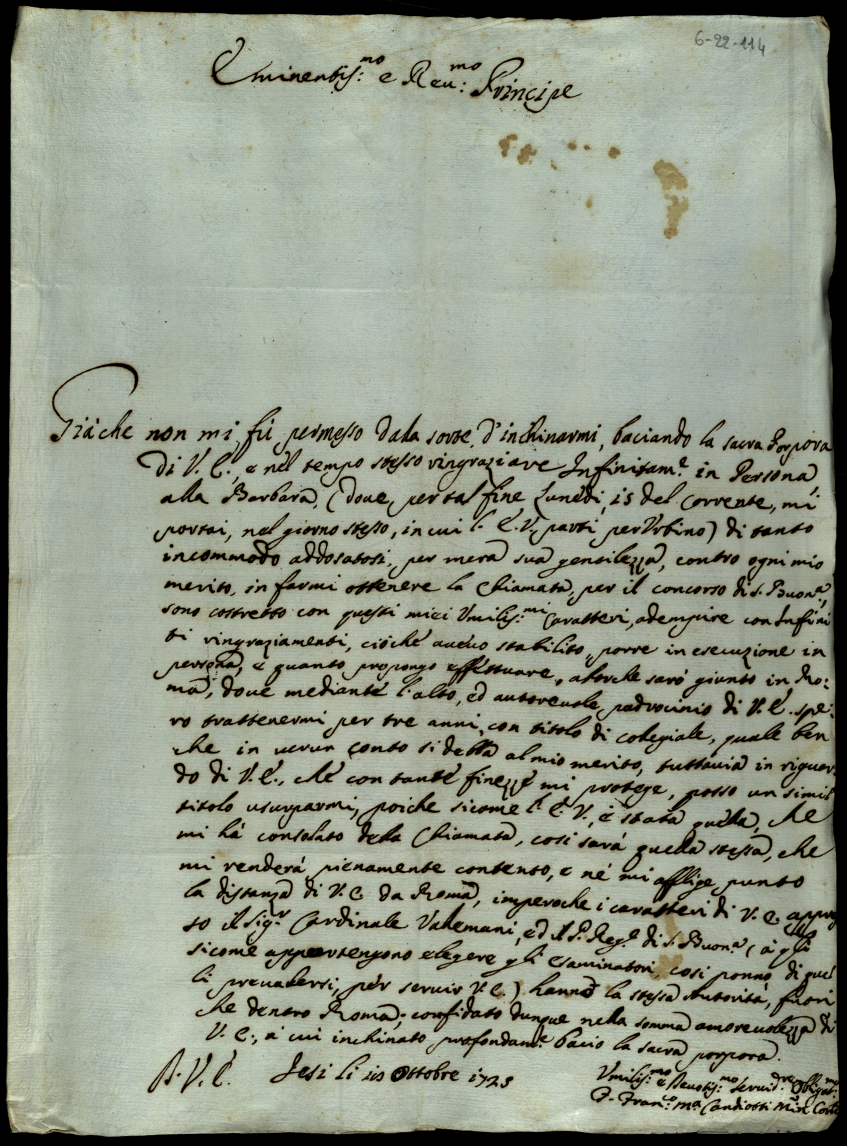 6-22-114
Eminentis:mo e Reu:mo Principe
Giàche non mi fù permesso dala sorte d'inchinarmi, baciando la sacra Porpora
di V. E., e nel tempo stesso ringraziare Infinitam.e in Persona
alla Barbara, (doue, per tal fine Lunedi, 15 del corrente, mi
portai, nel giorno stesso, in cui l' E. V. parti per Urbino) di tanto
incommodo addosatosi, per mera sua gentilezza, contro ogni mio
merito, in farmi ottenere la Chiamata, per il concorso di S. Buon.a,
sono costretto con questi miei Vmilis:mi Caratteri, adempire con Infini
ti ringraziamenti, ciòche aueuo stabilito, porre in esecuzione in
persona, e quanto propongo effettuare, alorche sarò giunto in Ro:
ma, doue mediante l'alto, ed autoreuole padrocinio di V. E. spe:
ro trattenermi per tre anni, con titolo di colegiale, quale ben
che in uerun conto si debba al mio merito, tuttauia in riguar
do di V. E., che con tante finezze mi protege, posso un simil
titolo usurparmi, poiche sicome l' E. V. è stata quella, che
mi hà consolato della Chiamata, cosi sarà quella stessa, che
mi renderà pienamente contento, e nè mi afflige punto
la distanza di V. E. da Roma, imperoche i caratteri di V. E. appres
so il Sig.r Cardinale Vallemani, ed il P. Reg.e di S. Buon.a (à gli
sicome appertengono elegere gli esaminatori cosi ponno di que
li preualersi, per seruir V. E.) hanno la stessa Autorità, fuori
che dentro Roma; confidato dunque nella somma amoreuolezza di
V. E., à cui inchinato profondam.e bacio la sacra porpora.
A. V. E. Jesi li Ottobre 1725
Vmilis:mo e Deuotis:mo Seruid.re Obligat:mo
F. Fran.co M.a Candiotti Min. Conu